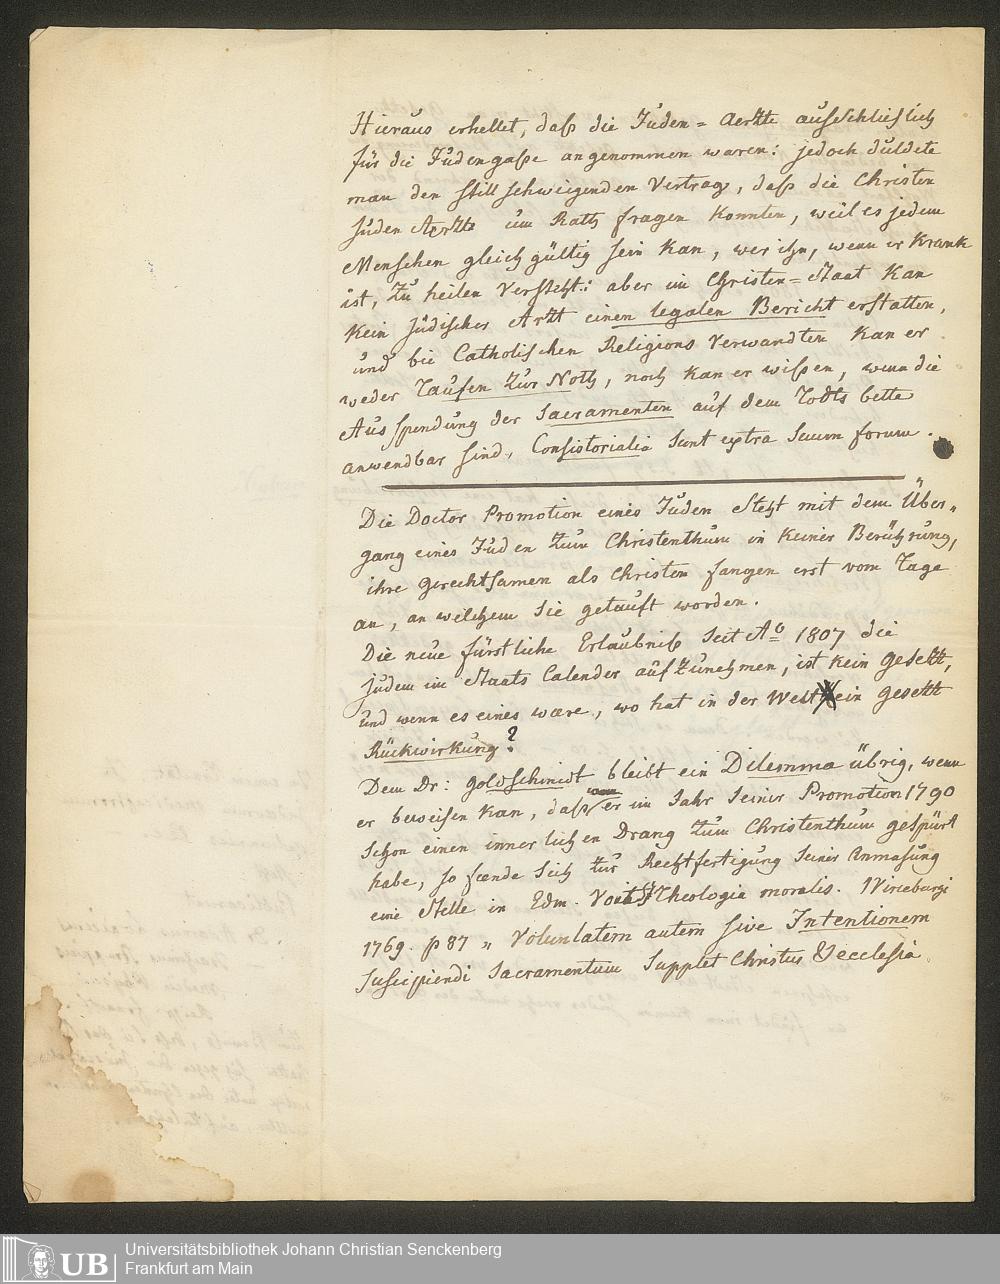 Hieraus erhellet, daß die Juden = Aerzte ausschlieslich
für die Judengaße angenommen waren: jedoch duldete
man den stillschweigenden Vertrag, daß die Christen
Juden Aerzte um Rath fragen konnten, weil es jedem
Menschen gleichgültig sein kan, wer ihn, wenn er krank
ist, zu heilen versteht: aber im Christen=Staat kan
kein Jüdischer Arzt einen legalen Bericht erstatten,
und bie Catholischen Religions Verwandten kan er
weder Taufen zur Noth, noch kan er wißen, wenn die
Ausspendung der Sacramenten auf dem Todts bette
anwendbar sind, Consistorialia sunt extra suum forum.
Die Doctor Promotion eines Juden steht mit dem Über-
gang eines Juden zum Christenthum in keiner Berührung,
ihre Gerechtsamen als Christen fangen erst vom Tage
an, an welchem sie getauft worden.
Die neue fürstliche Erlaubniß seit Ao 1807 die
Juden im Staats Calender aufzunehmen, ist kein gesetz,
und wenn es eines wære, wo hat in der Welt ein gesetz
Rückwirkung?
Dem Dr: Goldschmidt bleibt ein Dilemma übrig, wenn
er beweisen kan, daß er im Jahr seiner Promotion 1790
schon einen innerlichen Drang zum Christenthum gespürt
habe, so fænde sich zur Rechtfertigung seiner Anmasung
eine Stelle in Edm. Voit Theologia moralis. Wirceburgi
1769. p 87 „ Voluntatem autem sive Intentionem
suscipiendi Sacramentum supplet Christus & ecclesia